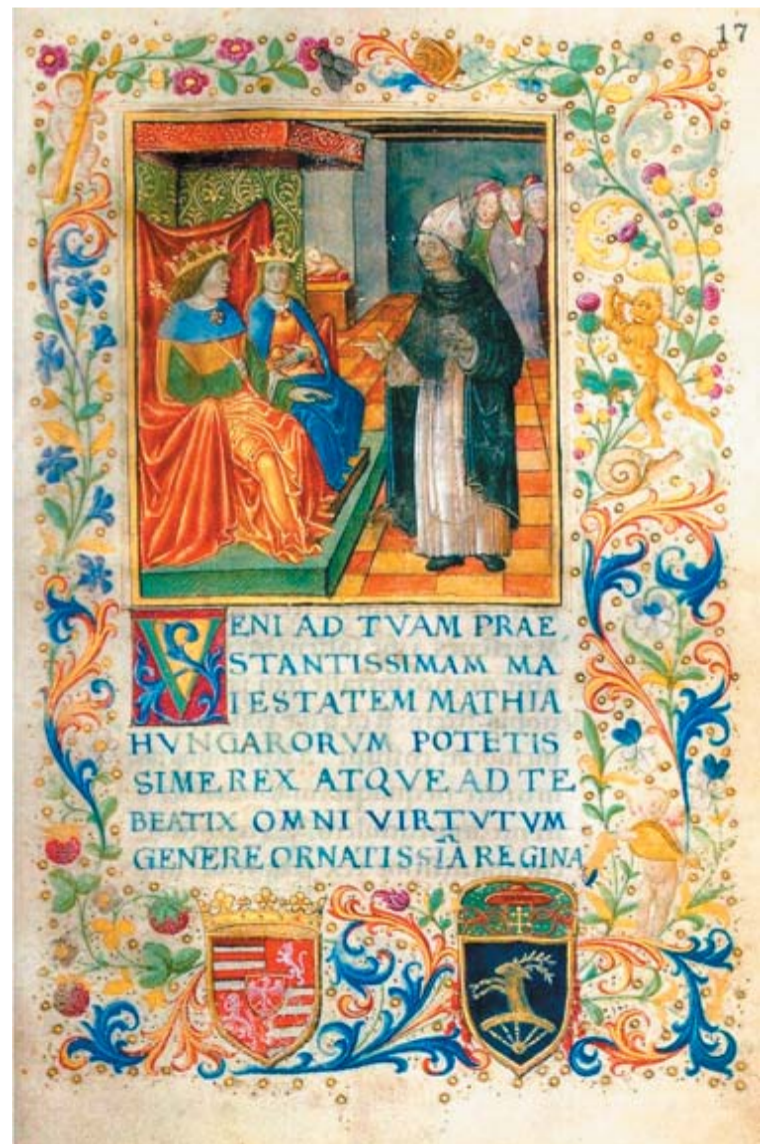 17
VENI AD TVAM PRAE
STANTISSIMAM MA
IESTATEM MATHIA
HVNGARORVM POTETIS
SIME REX ATQVE AD TE
BEATIX OMNI VIRTVTVM
GENERE ORNATISSIÂ REGINA